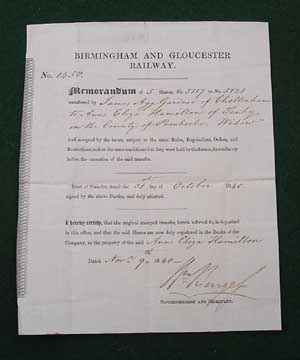 BIRMINGHAM AND GLOUCESTER
RAILWAY.
No. 1450.
Memorandum of 5 Shares, No. 5117 to No. 5121
transferred by James Agg Gardner of Cheltenham
to Anne Eliza Hamilton of Tenby
in the County of Pembroke Widow
and accepted by the latter, subject to the same Rules, Regulations, Orders, and
Restrictions, and on the same conditions that they were held by the former, immediately
before the execution of the said transfer.
Deed of Transfer, dated the 31st day of October 1840.
signed by the above Parties, and duly attested.
I hereby certify, that the original stamped transfer, herein referred to, is deposited
in this office, and that the said Shares are now duly registered in the Books of the
Company, as the property of the said Anne Eliza Hamilton
Dated Novr. 9th 1840
Wm
SUPERINTENDENT AND SECRETARY.